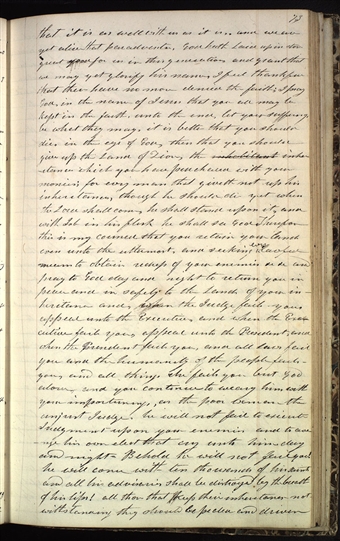 73
that it is as well with us as it is, and we are
yet alive that peradventure, God hath laid up in store
great good for us in this generation, and grant that
we may yet glorify his name, I feel thankful
that there have no more denied the faith; I pray
God, in the name of Jesus that you all may be
kept in the faith, unto the end, let your sufferings
be what they may, it is better that you should
die in the eye of God, then that you should
give up the Land of Zion, the inhabitant inher
itances which you have purchased with your
monies; for every man that giveth not up his
inheritance, though he should die yet when
the Lord shall come, he shall stand upon it, and
with Job in his flesh he shall see God. Therefore
this is my council that you retain your lands
even unto the uttermost, and seeking every lawful
means to obtain redress of your enemies &c and
pray to God day and night to return you in
peace and in safety to the Lands of your in
heritance and, when the Judge fail you
appeal unto the Executive, and when the Exec
utive fail you, appeal unto the President, and
when the President fail you, and all laws fail
you and the humanity of the people fail
you, and all things else fail you but God
alone, and you continue to weary him with
your importunings, as the poor woman the
unjust Judge, he will not fail to execute
Judgment upon your enemies and to ave
nge his own elect that cry unto him day
and night Behold he will not fail you!
he will come with ten thousands of his saints
and all his adversaries shall be distroyed by the breath
of his lips! all those that keep their inheritances not
withstanding they should be peeled and driven